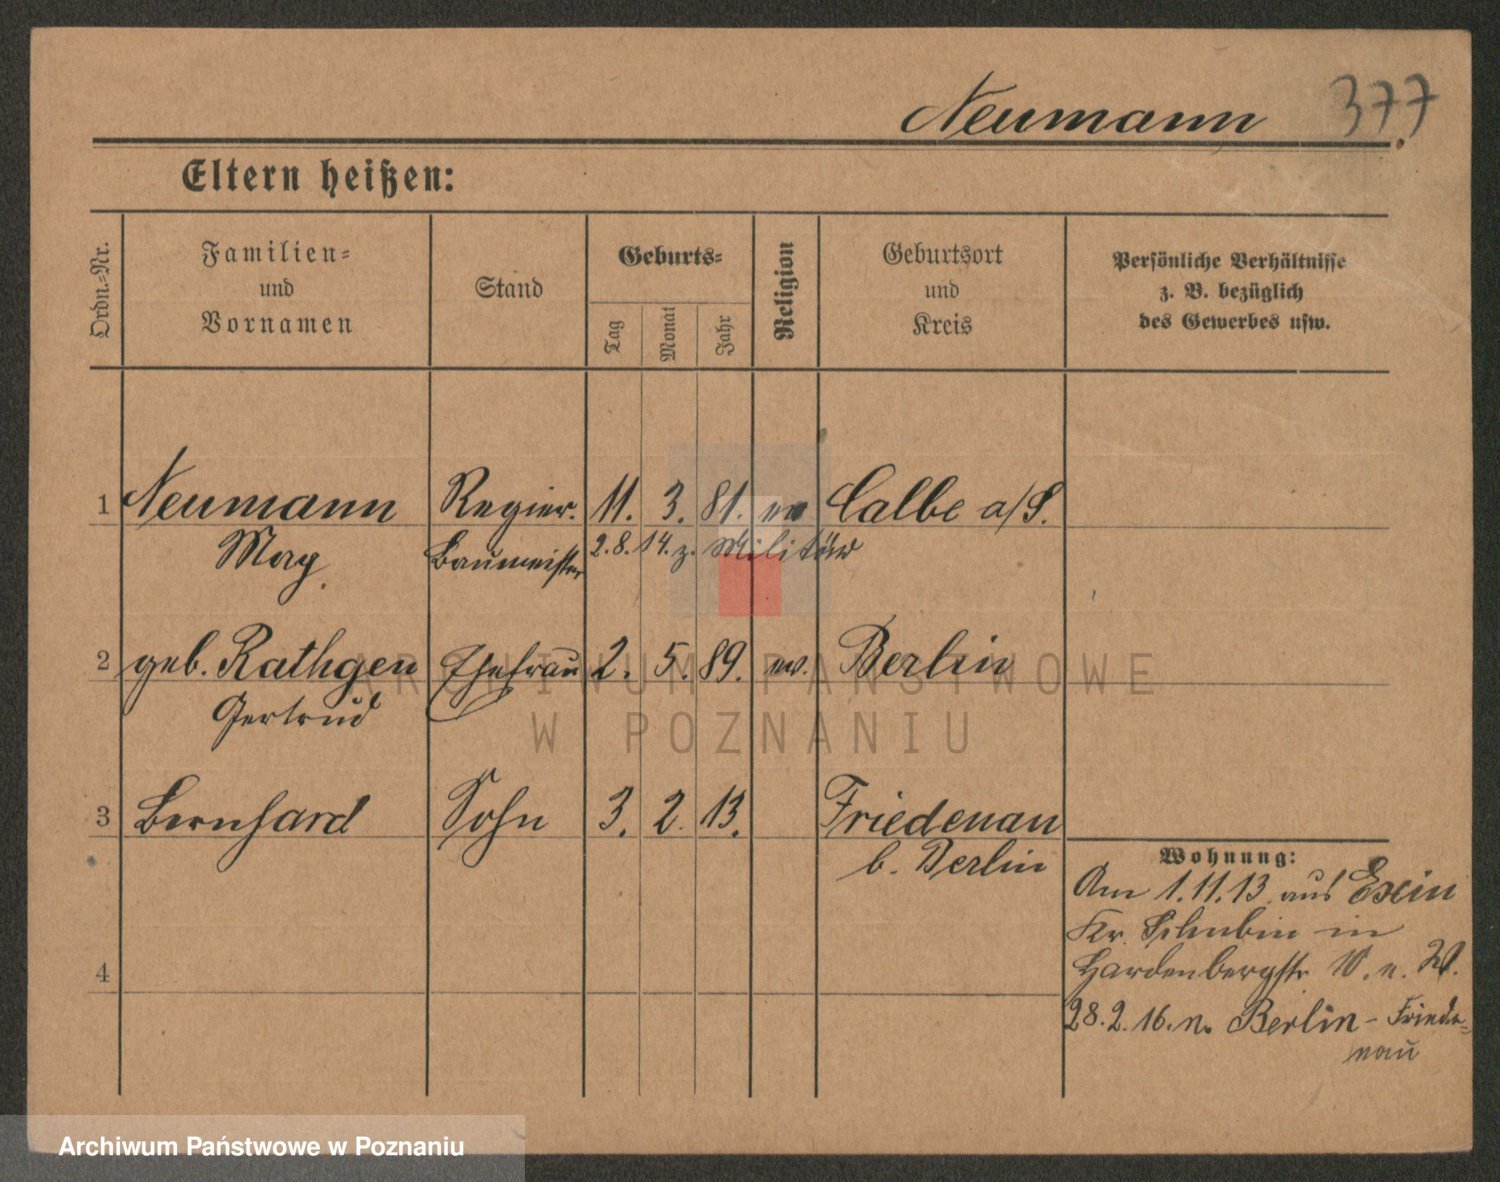 Neumann 377
Eltern heißen:
Ordn.-Nr.
Familien-
und
Vornamen
Stand
Geburts-
Tag
Monat
Jahr
Religion
Geburtsort
und
Kreis
Persönliche Verhältnisse
z. B. bezüglich
des Gewerbes usw.
1 Neumann Regier. 11. 3. 81. ev Calbe a/S.
Max Baumeister 2.8.14. z. Militär
2 geb. Rathgen Ehefrau 2. 5. 89. ev. Berlin
Gertrud
3 Bernhard Sohn 3. 2. 13. Friedenau
b. Berlin
Wohnung:
Am 1.11.13 aus Exin
Kr. Schubin in
Hardenbergstr 10.
4
28.2.16. n. Berlin-Friede-
nau
ARCHIWUM PAŃSTWOWE
W POZNANIU
Archiwum Państwowe w Poznaniu